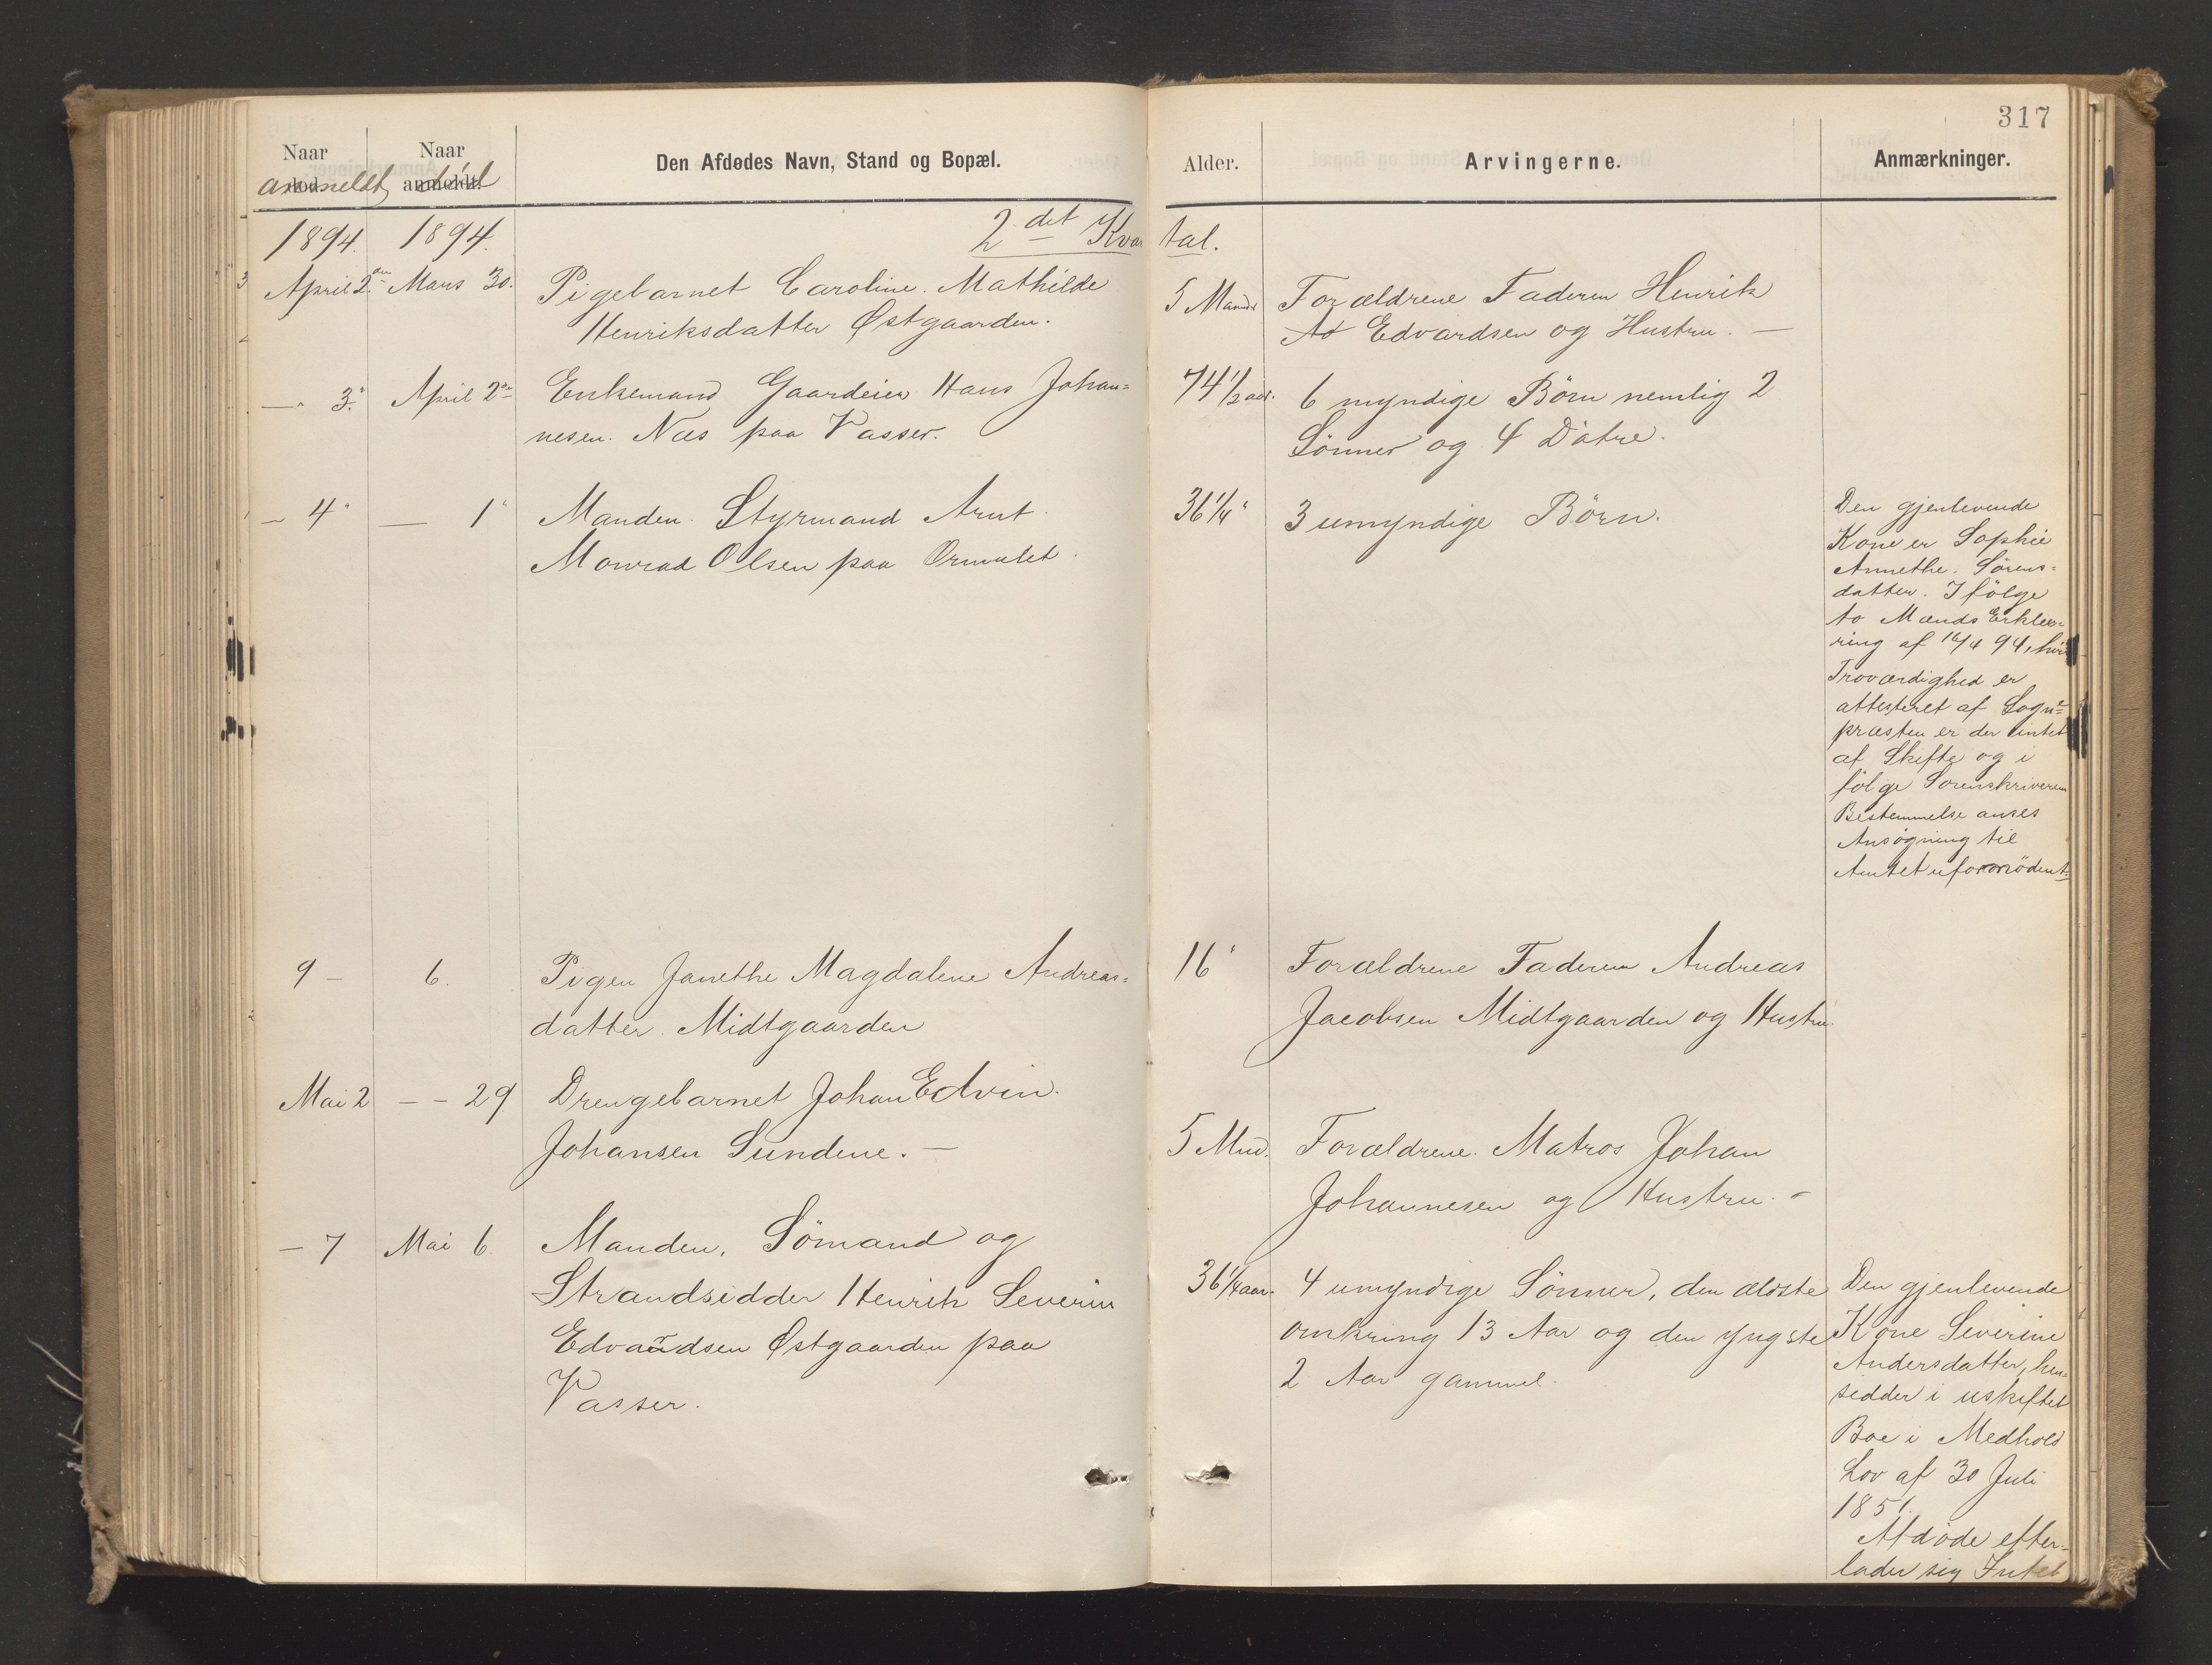 317
Naar
død.
anmeldt,
Naar
anmeldt.
död
Den Afdødes Navn, Stand og Bopæl.
Alder.
Arvingerne.
Anmærkninger.
1894. 1894.
2det Kvar tal.
April 2den Mars 30.
Pigebarnet Caroline Mathilde
Henriksdatter Østgaarden.
5 Maander
Forældrene Faderen Henrik
Edvardsen og Hustru. —
— " 3. April 2den
Enkemand Gaardeier Hans Johan=
nesen. Næs paa Vasser.
74 1/2 aar.
6 myndige Börn nemlig 2
Sönner og 4 Dötre.
— 4 " — 1 "
Manden. Styrmand Arnt
Monrad Olsen paa Ormelet.
36 1/4 "
3 umyndige Börn.
Den gjenlevende
Kone er Sophie
Annethe. Sörens=
datter. Ifölge
to Mænds Erklæ=
ring af 16/4 94, hvis
Troværdighed er
attesteret af Sogne=
præsten er der intet
at Skifte og i
fölge Sorenskriverens
Bestemmelse anses
Ansögning til
Amtet ufornödent.
9 — 6.
Pigen Janethe Magdalene Andreas=
datter. Midtgaarden
16 "
Forældrene Faderen Andreas
Jacobsen Midtgaarden og Hustru.
Mai 2 — — 29
Drengebarnet Johan Edvin.
Johansen Sundene. —
5 Mnd.
Forældrene. Matros Johan
Johannesen og Hustru. —
— 7 Mai 6.
Manden, Sömand og
Strandsidder Henrik Severin
Edvardsen Østgaarden paa
Vasser.
36 1/4 aar.
4 umyndige Sönner, den ældste
omkring 13 Aar og den yngste
2 Aar gammel.
Den gjenlevende
Kone Severine
Andersdatter, hen=
sidder i uskiftet
Boe i Medhold
Lov af 30 Juli
1851.
Afdöde efter=
lader sig Intet